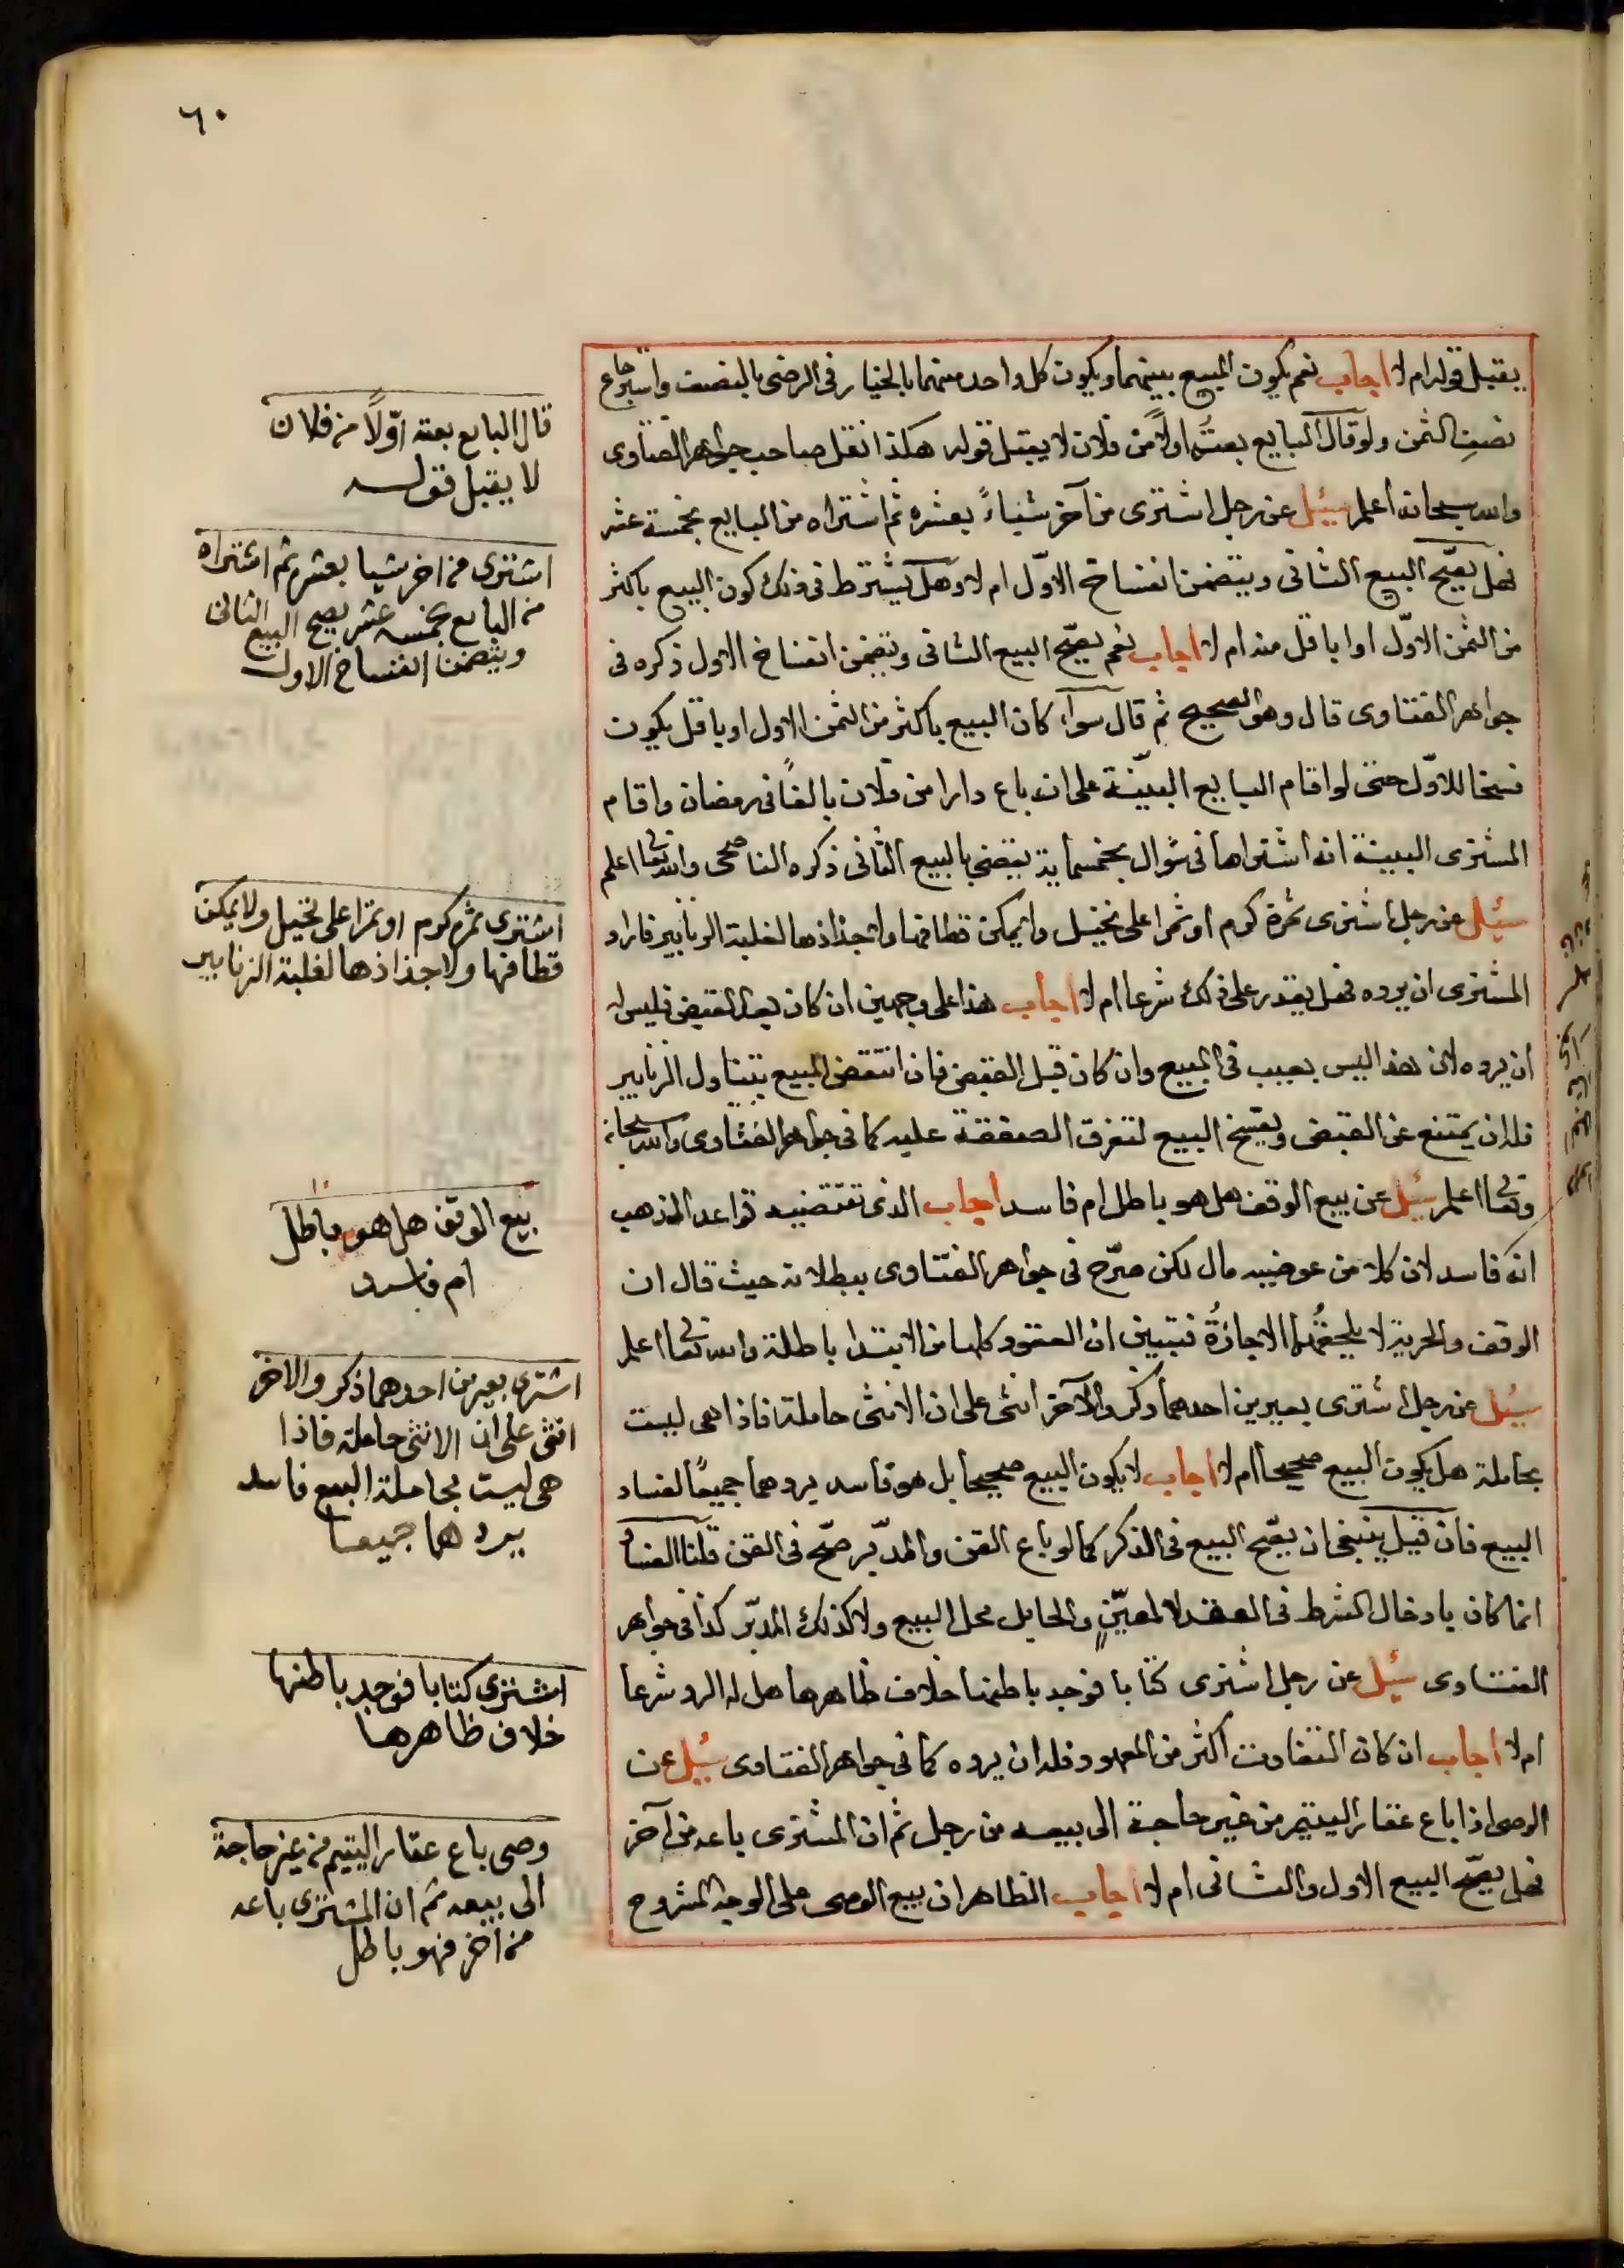 ٦٠
يقبل قوله ام لا اجاب نعم يكون المبيع بينهما ويكون كل واحد منهما بالخيار فى الرضى بالنصف واسترجاع
نصف الثمن ولو قال البايع بعته اولاً من فلان لا يقبل قوله هكذا نقل صاحب جواهر الفتاوى
والله سبحانه اعلم سئيل عن رجل اشترى من آخر شياءً بعشره ثم اشتراه من البايع بخمسة عشر
فهل يصّح البيع الثانى ويتضمن انفساخ الاوّل ام لا وهل يشترط فى ذلك كون البيع باكثر
من الثمن الاوّل او باقل منه ام لا اجاب نعم يصّح البيع الثانى وتضمن انفساخ الاول ذكره فى
جواهر الفتاوى قال وهو الصحيح ثم قال سوآء كان البيع باكثر من الثمن الاول او باقل يكون
فسخا للاوّل حتى لو اقام البايع البيّنة على انه باع دارا من فلان بالفٍ فى رمضان واقام
المشترى البينة انه اشتراها فى شوال بخمسماية يقضى بالبيع الثانى ذكره الناصحى والله تعالى اعلم
سئيل عن رجل اشترى ثمرة كرم او ثمرا على نخيل ولا يمكن قطافها ولا جذاذها لغلبة الزنابير فاراد
المشترى ان يرده فهل يقدر على ذلك شرعا ام لا اجاب هذا على وجهين ان كان بعد القبض فليس له
ان يرده لان هذا ليس بعيب فى المبيع وان كان قبل القبض فان انتقض المبيع بتناول الزنابير
فله ان يمتنع عن القبض ويفسخ البيع لتفرق الصفقة عليه كما فى جواهر الفتاوى والله سبحانه
وتعالى اعلم سئيل عن بيع الوقف هل هو باطل ام فاسد اجاب الذى تقتضيه قواعد المذهب
انه فاسد لان كلا من عوضيه مال لكن صرّح فى جواهر الفتاوى ببطلانه حيث قال ان
الوقف والحرية لا يلحقهما الاجازة فتبين ان العقود كلها من الابتدا باطلة والله تعالى اعلم
سيئل عن رجل اشترى بعيرين احدهما ذكر والآخر انثى على ان الانثى حاملة فاذا هى ليست
بحاملة هل يكون البيع صحيحا ام لا اجاب لا يكون البيع صحيحا بل هو فاسد يردهما جميعًا لفساد
البيع فان قيل ينبغى ان يصّح البيع فى الذكر كما لو باع القن والمدبّر صحّ فى القن قلنا الفساد
انما كان بادخال الشرط فى العقد لا لمعيّنٍ والحايل محل البيع ولا كذلك المدبّر كذا فى جواهر
الفتاوى سئيل عن رجل اشترى كتابا فوجد باطنها خلاف ظاهرها هل له الرد شرعا
ام لا اجاب ان كان التفاوت اكثر من المعهود فله ان يرده كما فى جواهر الفتاوى سئيل عن
الوصى اذا باع عقار اليتيم من غير حاجة الى بيعه من رجل ثم ان المشترى باعه من آخر
فهل يصّح البيع الاول والثانى ام لا اجاب الظاهر ان بيع الوصى على الوجه المشروح
قال البايع بعته اوّلاً من فلان
لا يقبل قوله
اشترى من اخر شيا بعشر ثم اشتراه
من البايع بخمسه عشر يصح البيع الثانى
ويتضمن انفساخ الاول
اشترى ثمر كرم او ثمرا على نخيل ولا يمكن
قطافها ولا جذاذها لغلبة الزنابير
بيع الوقف هل هو باطل
ام فاسد
اشترى بعيرين احدهما ذكر والاخر
انثى على ان الانثى حاملة فاذا
هى ليست بحاملة البيع فاسد
يردهما جميعا
اشترى كتابا فوجد باطنها
خلاف ظاهرها
وصى باع عقار اليتيم من غير حاجة
الى بيعه ثم ان المشترى باعه
من اخر فهو باطل